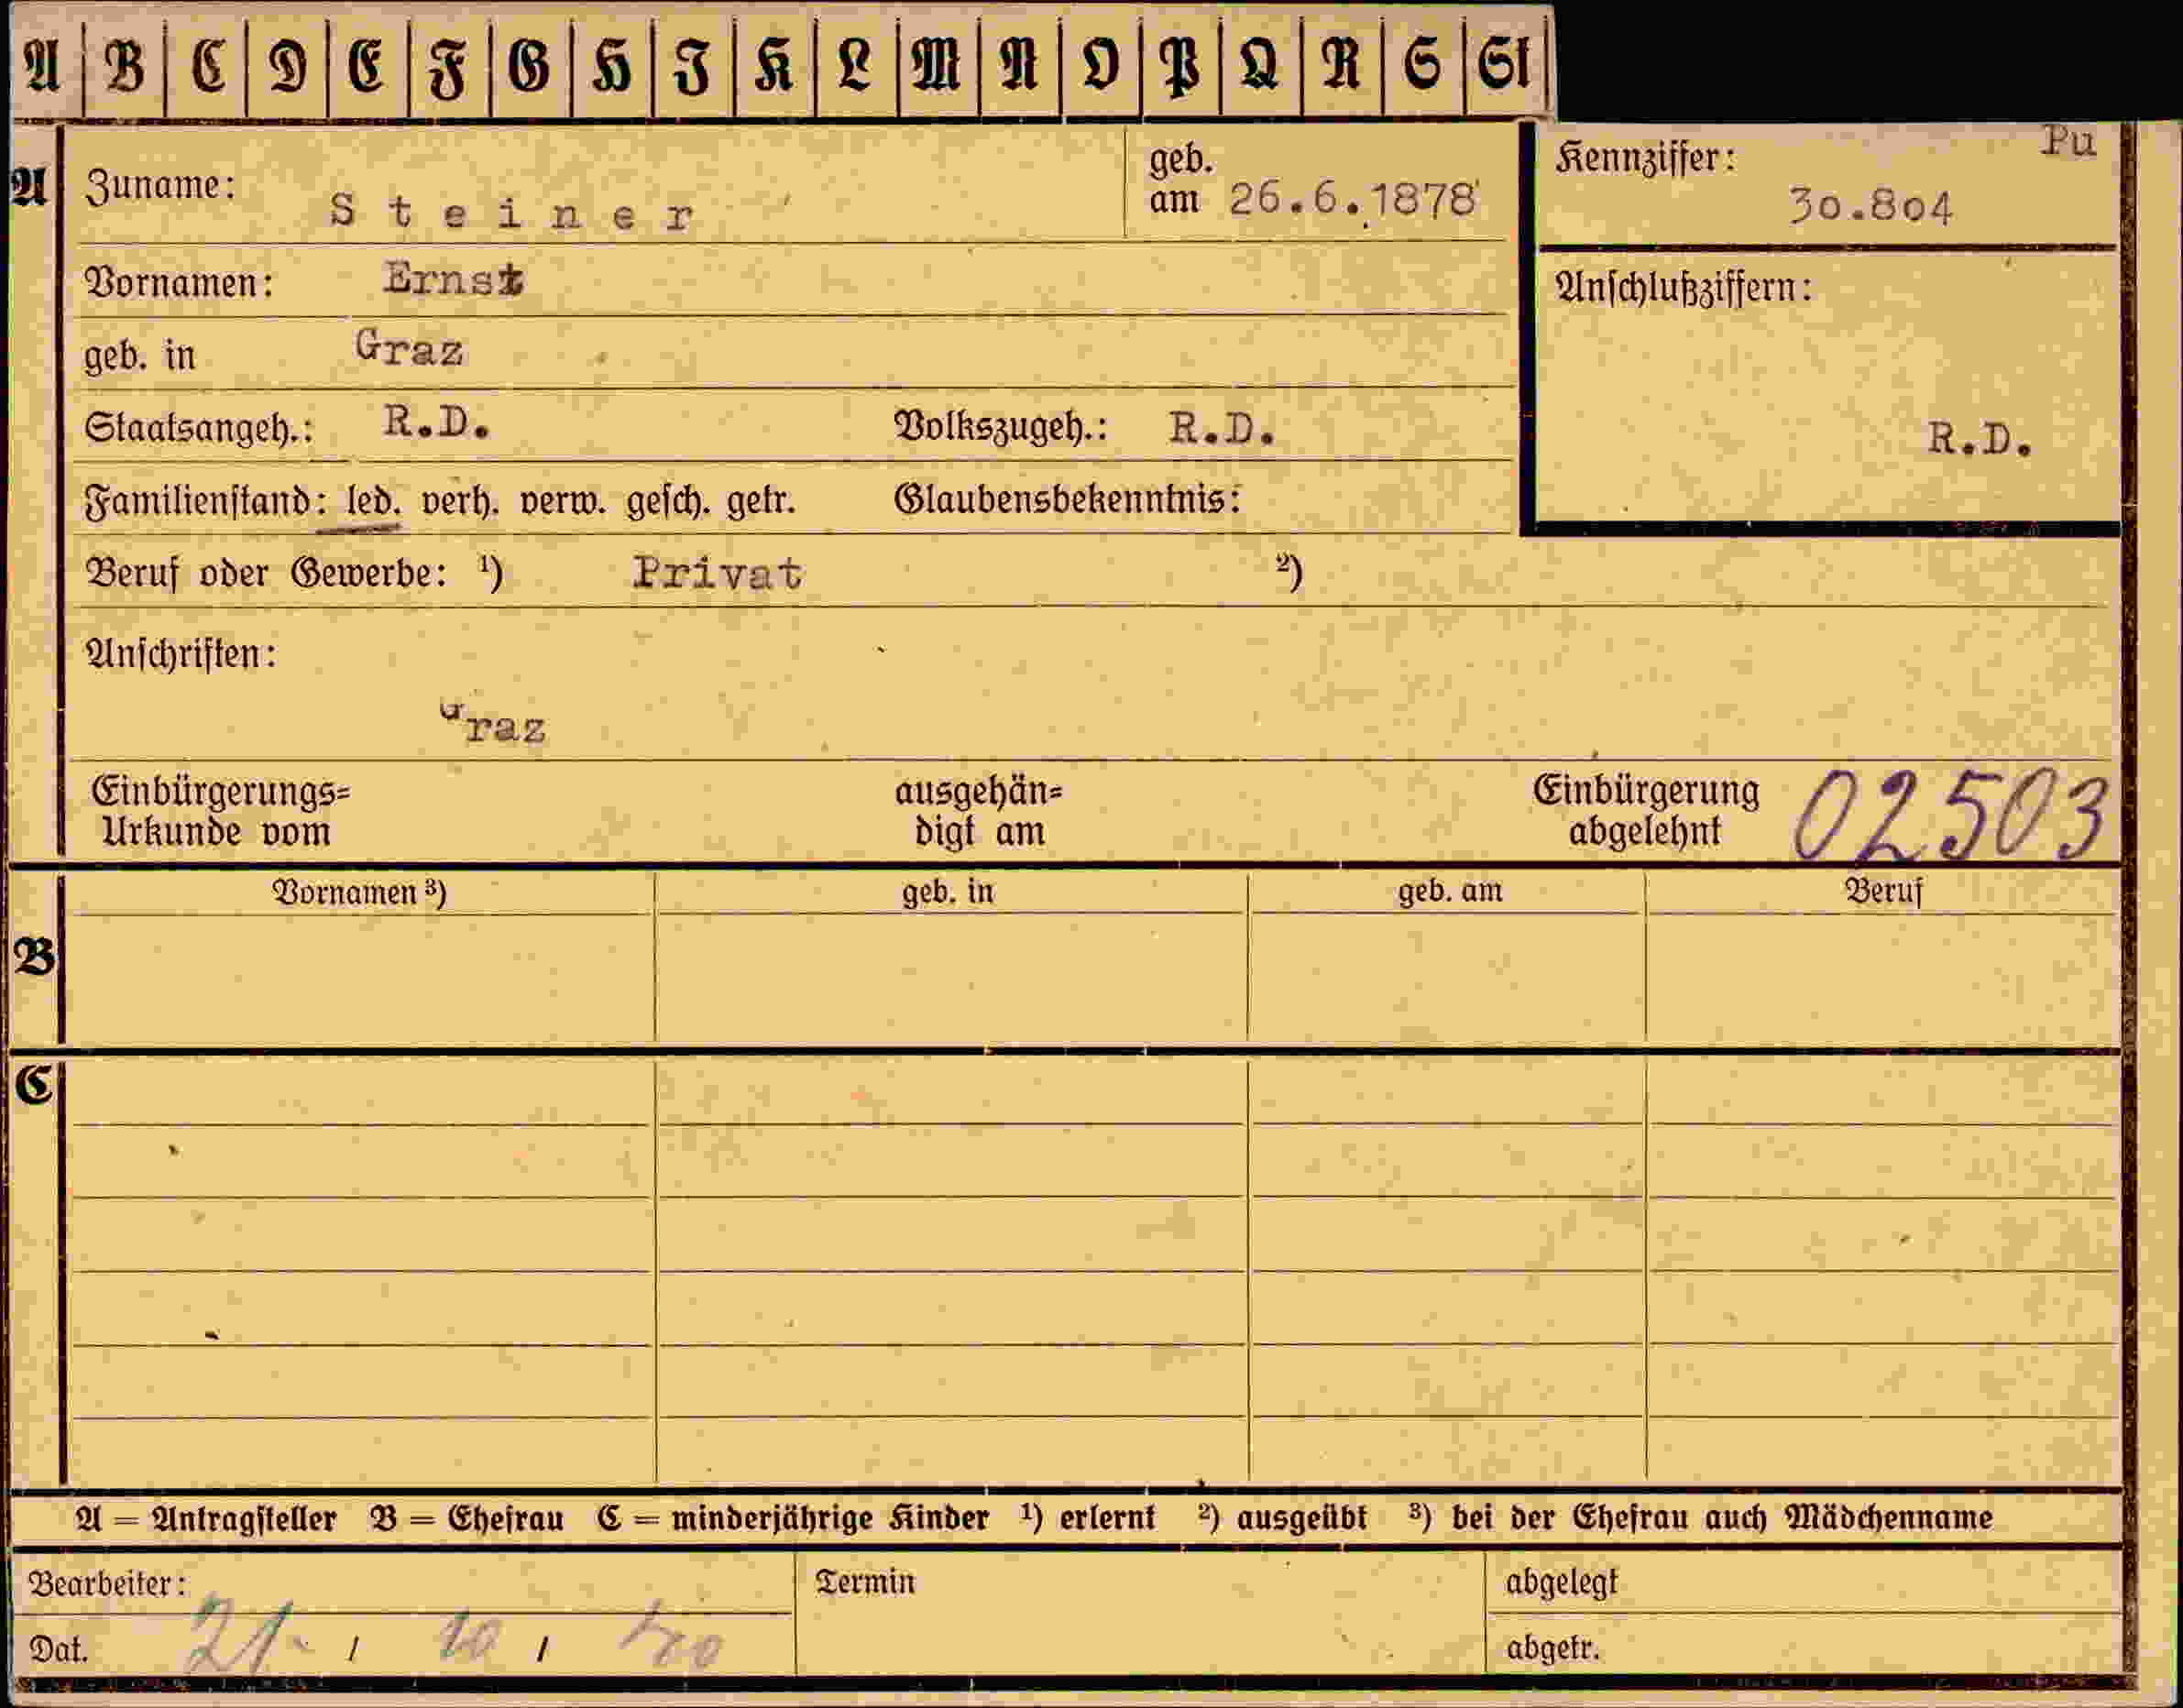 A B C D E F G H I K L M N O P Q R S St
A Zuname: Steiner geb. am 26.6.1878
Kennziffer: Pu
30.804
Vornamen: Ernst
Anschlußziffern:
geb. in Graz
Staatsangeh.: R.D. Volkszugeh.: R.D.
R.D.
Familienstand: led. verh. verw. gesch. getr. Glaubensbekenntnis:
Beruf oder Gewerbe: ¹) Privat ²)
Anschriften:
Graz
Einbürgerungs= ausgehän= Einbürgerung 02503
Urkunde vom digt am abgelehnt
Vornamen ³) geb. in geb. am Beruf
B
C
A = Antragsteller B = Ehefrau C = minderjährige Kinder ¹) erlernt ²) ausgeübt ³) bei der Ehefrau auch Mädchenname
Bearbeiter: Termin abgelegt
Dat. 21. / 10 / 40 abgetr.